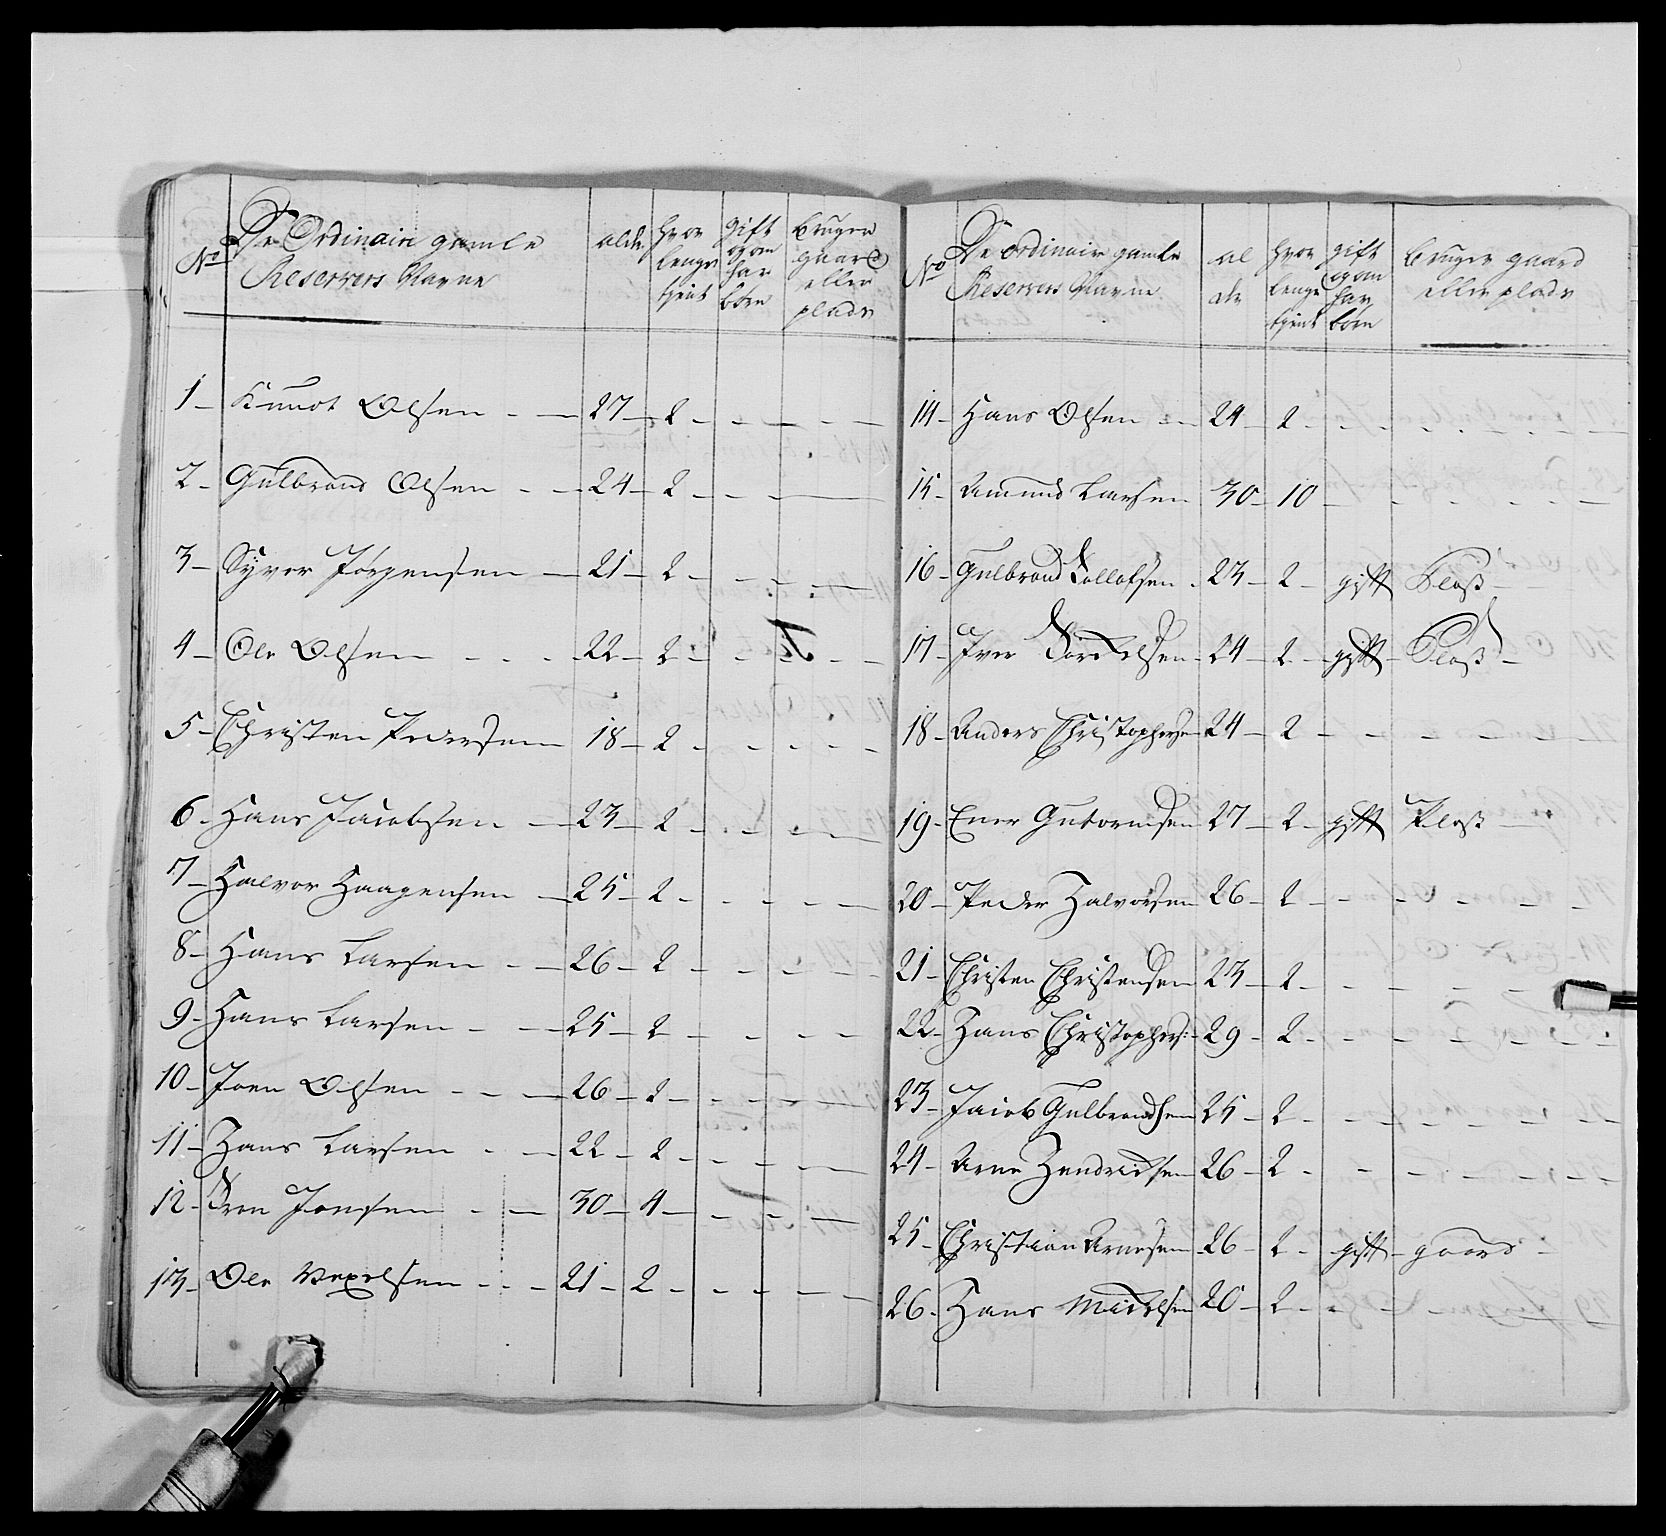 No De Ordinaire gamle Reservers Nafne alder hvor lenge tjent gift og om har børn bruger gaard eller plads
1 - Knuut Olsen - 27 - 2 -
2 - Gulbrand Olsen - 24 - 2 -
3 - Syver Jörgensen - 21 - 2 -
4 - Ole Olsen - 22 - 2 -
5 - Christen Pedersen 18 - 2 -
6 - Hans Jacobsen - 23 - 2 -
7 - Halvor Haagensen - 25 - 2 -
8 - Hans Larsen - 26 - 2 -
9 - Hans Larsen - 25 - 2 -
10 - Joen Olsen - 26 - 2 -
11 - Hans Larsen - 22 - 2 -
12 - Iver Jonsen - 30 - 4 -
13 - Ole Olsen - 21 - 2 -
No De ordinaire gamle Reservers Nafne al der hvor lenge tjent gift og om har børn bruger gaard eller plads
14 - Hans Olsen - 24 - 2 -
15 - Amund Larsen 30 - 10 -
16 - Gulbrand Tollofsen - 23 - 2 - gift Plads -
17 - Iver 24 - 2 - gift - Plads -
18 - Anders Christophersen 24 - 2 -
19 - Ener Gutormsen 27 - 2 - gift Plads -
20 - Peder Halvorsen 26 - 2 -
21 - Christen Christensen 23 - 2 -
22 - Hans Christophers: 29 - 2 -
23 - Jacob Gulbrandsen 25 - 2 -
24 - Arne Hendrichsen 26 - 2 -
25 - Christian Arnesen 26 - 2 - gift - gaard -
26 - Hans Michelsen 20 - 2 -